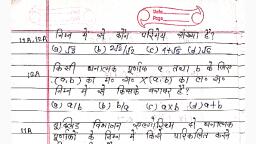 Date
Page
11A,12A निम्न में से कौन परिमेय संख्या है?
(a)√3 (b) 2√3/√3 (c) 4+√5 (d) √5
12A किसी धनात्मक पूर्णांक a तथा b के लिए
(a,b) का म० स० X (a,b) का ल० स०
निम्न में से किसके बराबर है?
(a) a/b (b) b/a (c) axb (d) a+b
11A यूक्लिड विभाजन एल्गोरिथ्म दो धनात्मक
पूर्णांकों के निम्न में किसे परिकलित करने